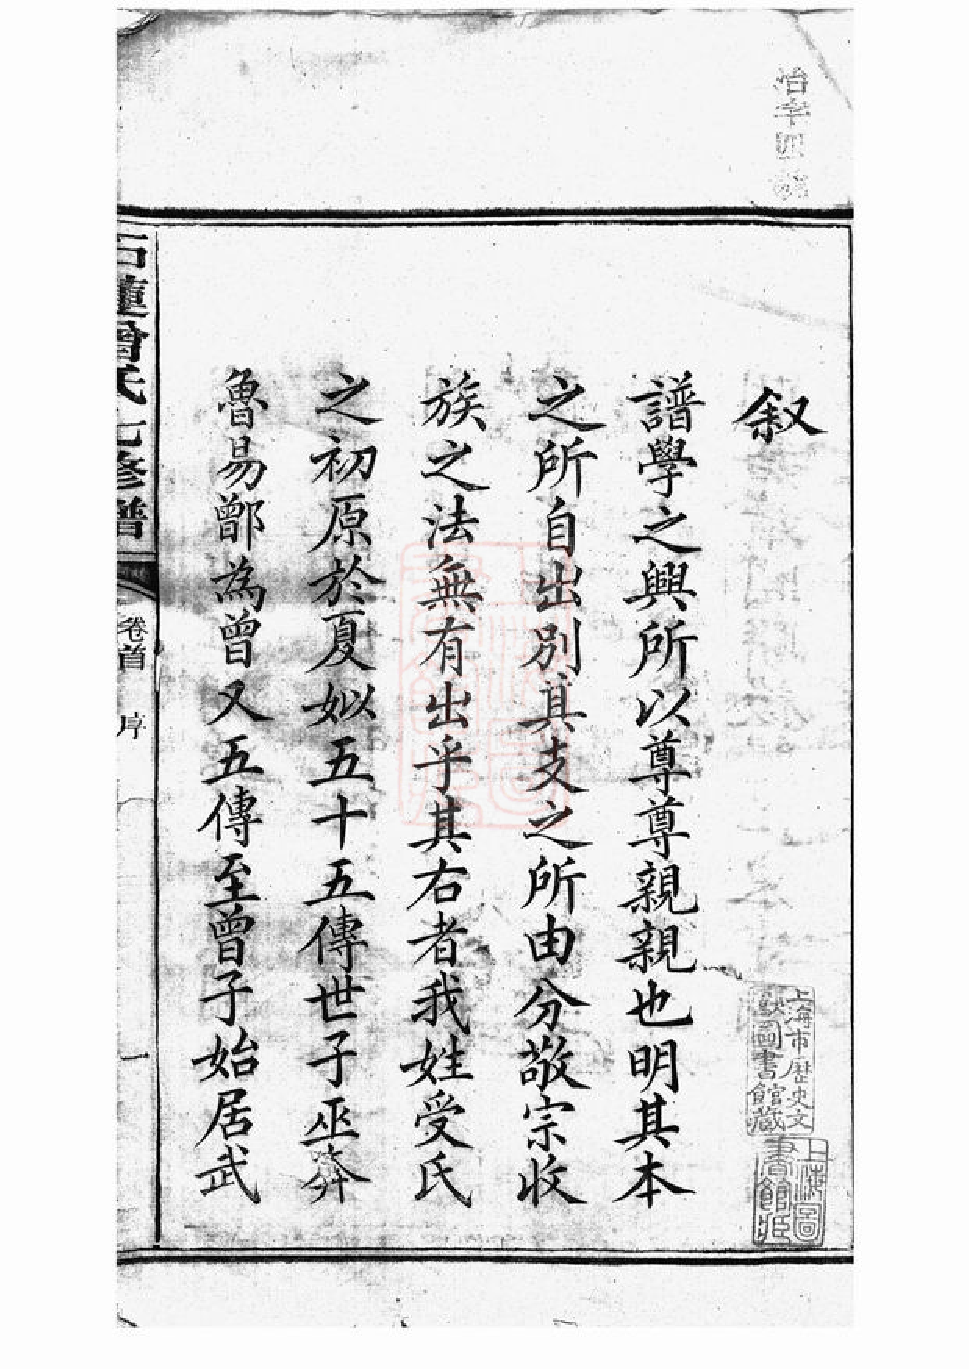 叙
譜學之興所以尊尊親親也明其本
之所自出別其支之所由分敬宗收
族之法無有出乎其右者我姓受氏
之初原於夏姒五十五傳世子巫奔
魯易鄫為曾又五傳至曾子始居武
石蓮曾氏七修譜
卷首
序
一
上海市歷史文
獻圖書館藏
上海圖
書館藏